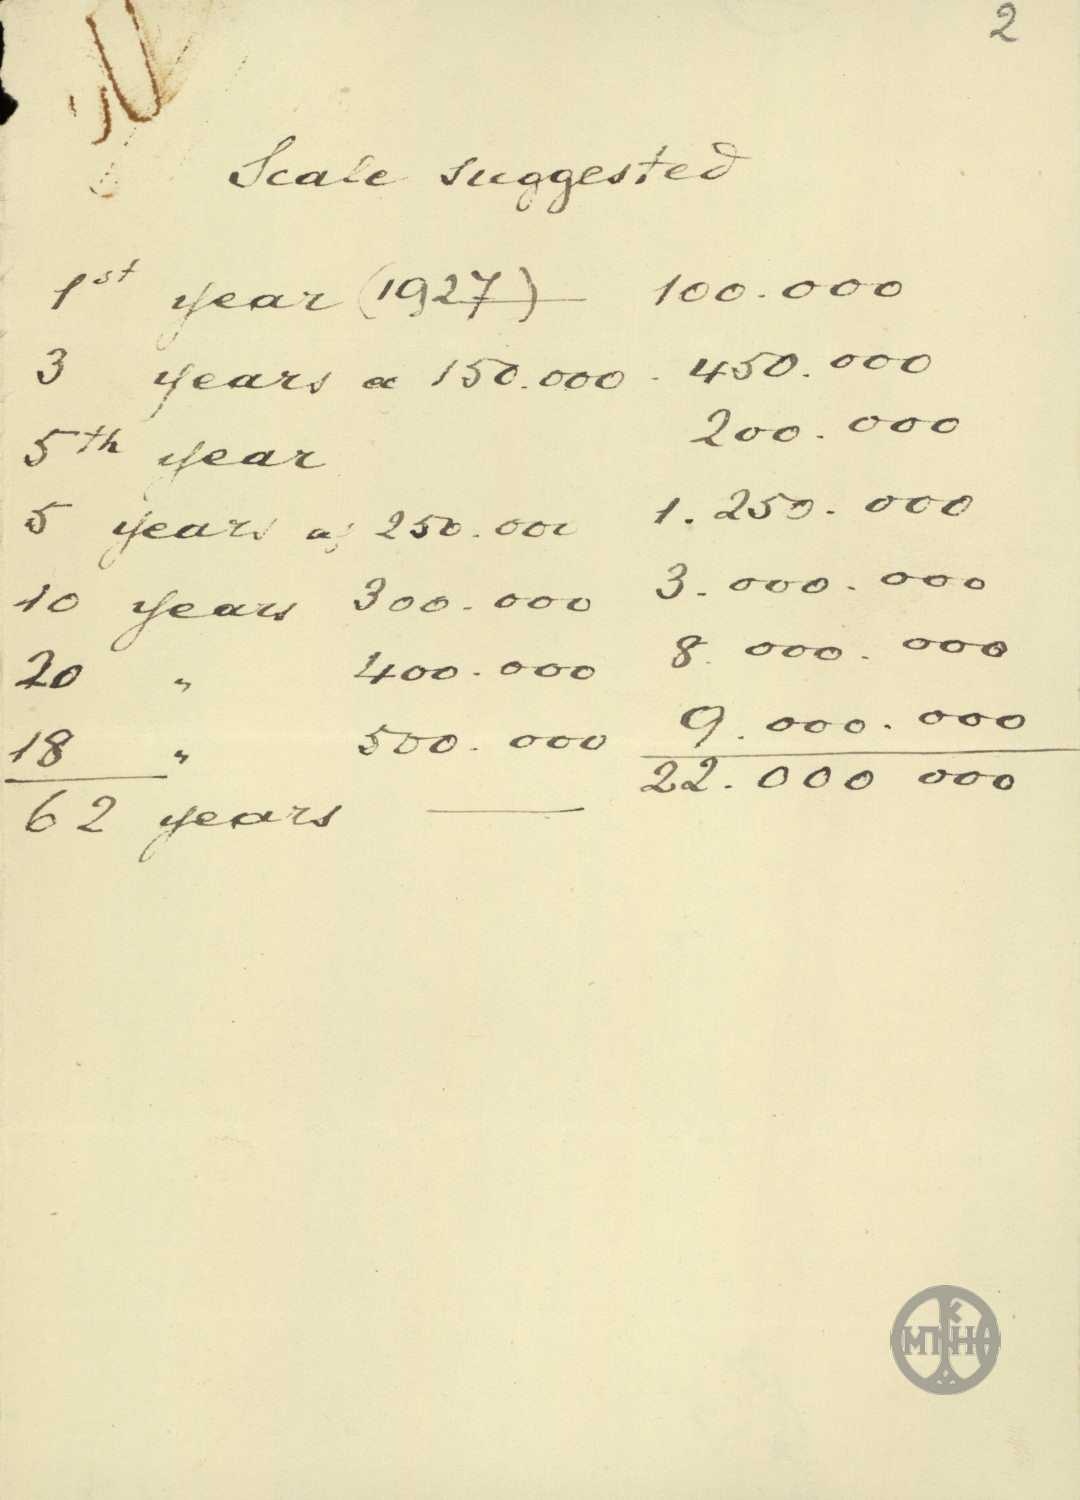 2
Scale suggested
1st year (1927) — 100.000
3 years a 150.000 - 450.000
5th year 200.000
5 years a 250.000 1.250.000
10 years 300.000 3.000.000
20 " 400.000 8.000.000
18 " 500.000 9.000.000
62 years — 22.000 000
ΜΠΗΚ